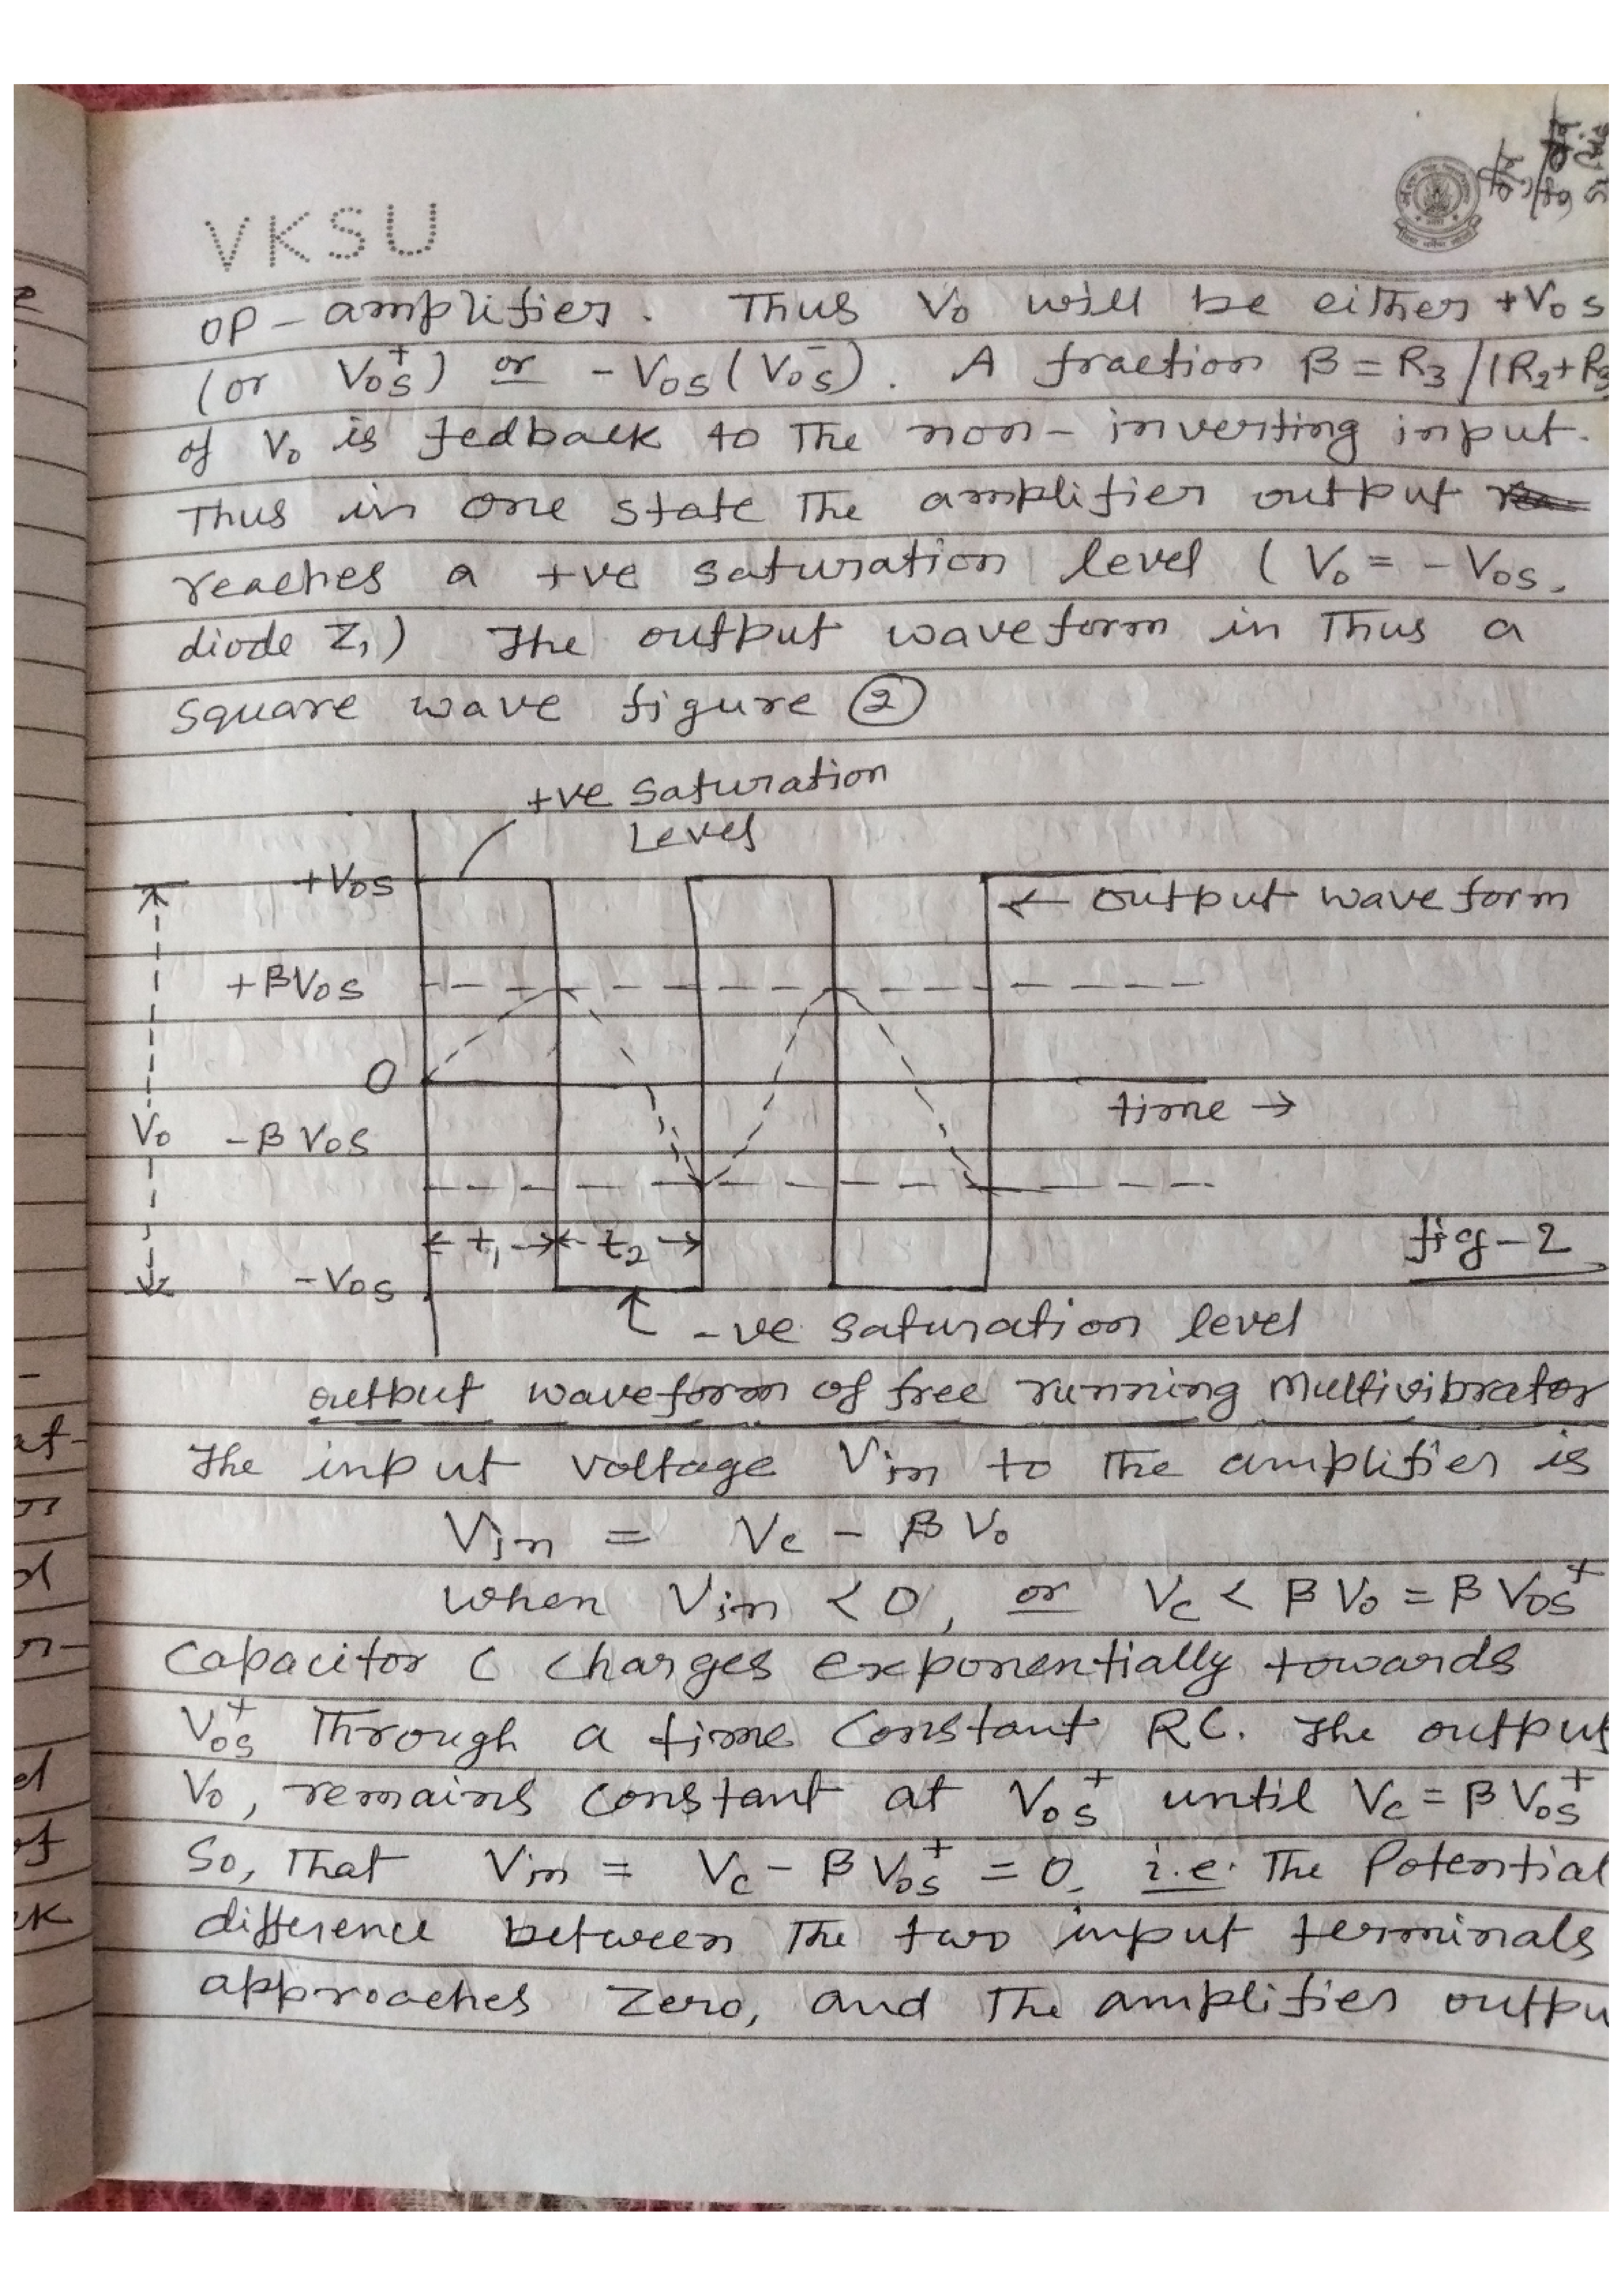 VKSU
OP-amplifier. Thus V₀ will be either +V₀s
(or V₀s⁺) or -V₀s (V₀s⁻). A fraction β = R₃/(R₂+R₃
of V₀ is fedback to the non-inverting input.
Thus in one state the amplifier output
reaches a +ve saturation level (V₀ = -V₀s,
diode Z₁) The output waveform in Thus a
square wave figure ②
+ve saturation
Level
+V₀s
← output wave form
+βV₀s
0
time →
V₀
-βV₀s
← t₁ → ← t₂ →
fig-2
-V₀s
-ve saturation level
output waveform of free running Multivibrator
The input voltage Vin to the amplifier is
Vin = Vc - βV₀
when Vin < 0, or Vc < βV₀ = βV₀s⁺
Capacitor C charges exponentially towards
V₀s⁺ Through a time constant RC. The output
V₀, remains constant at V₀s⁺ until Vc = βV₀s⁺
So, That Vin = Vc - βV₀s⁺ = 0, i.e. The Potential
difference between The two input terminals
approaches Zero, and The amplifier outpu